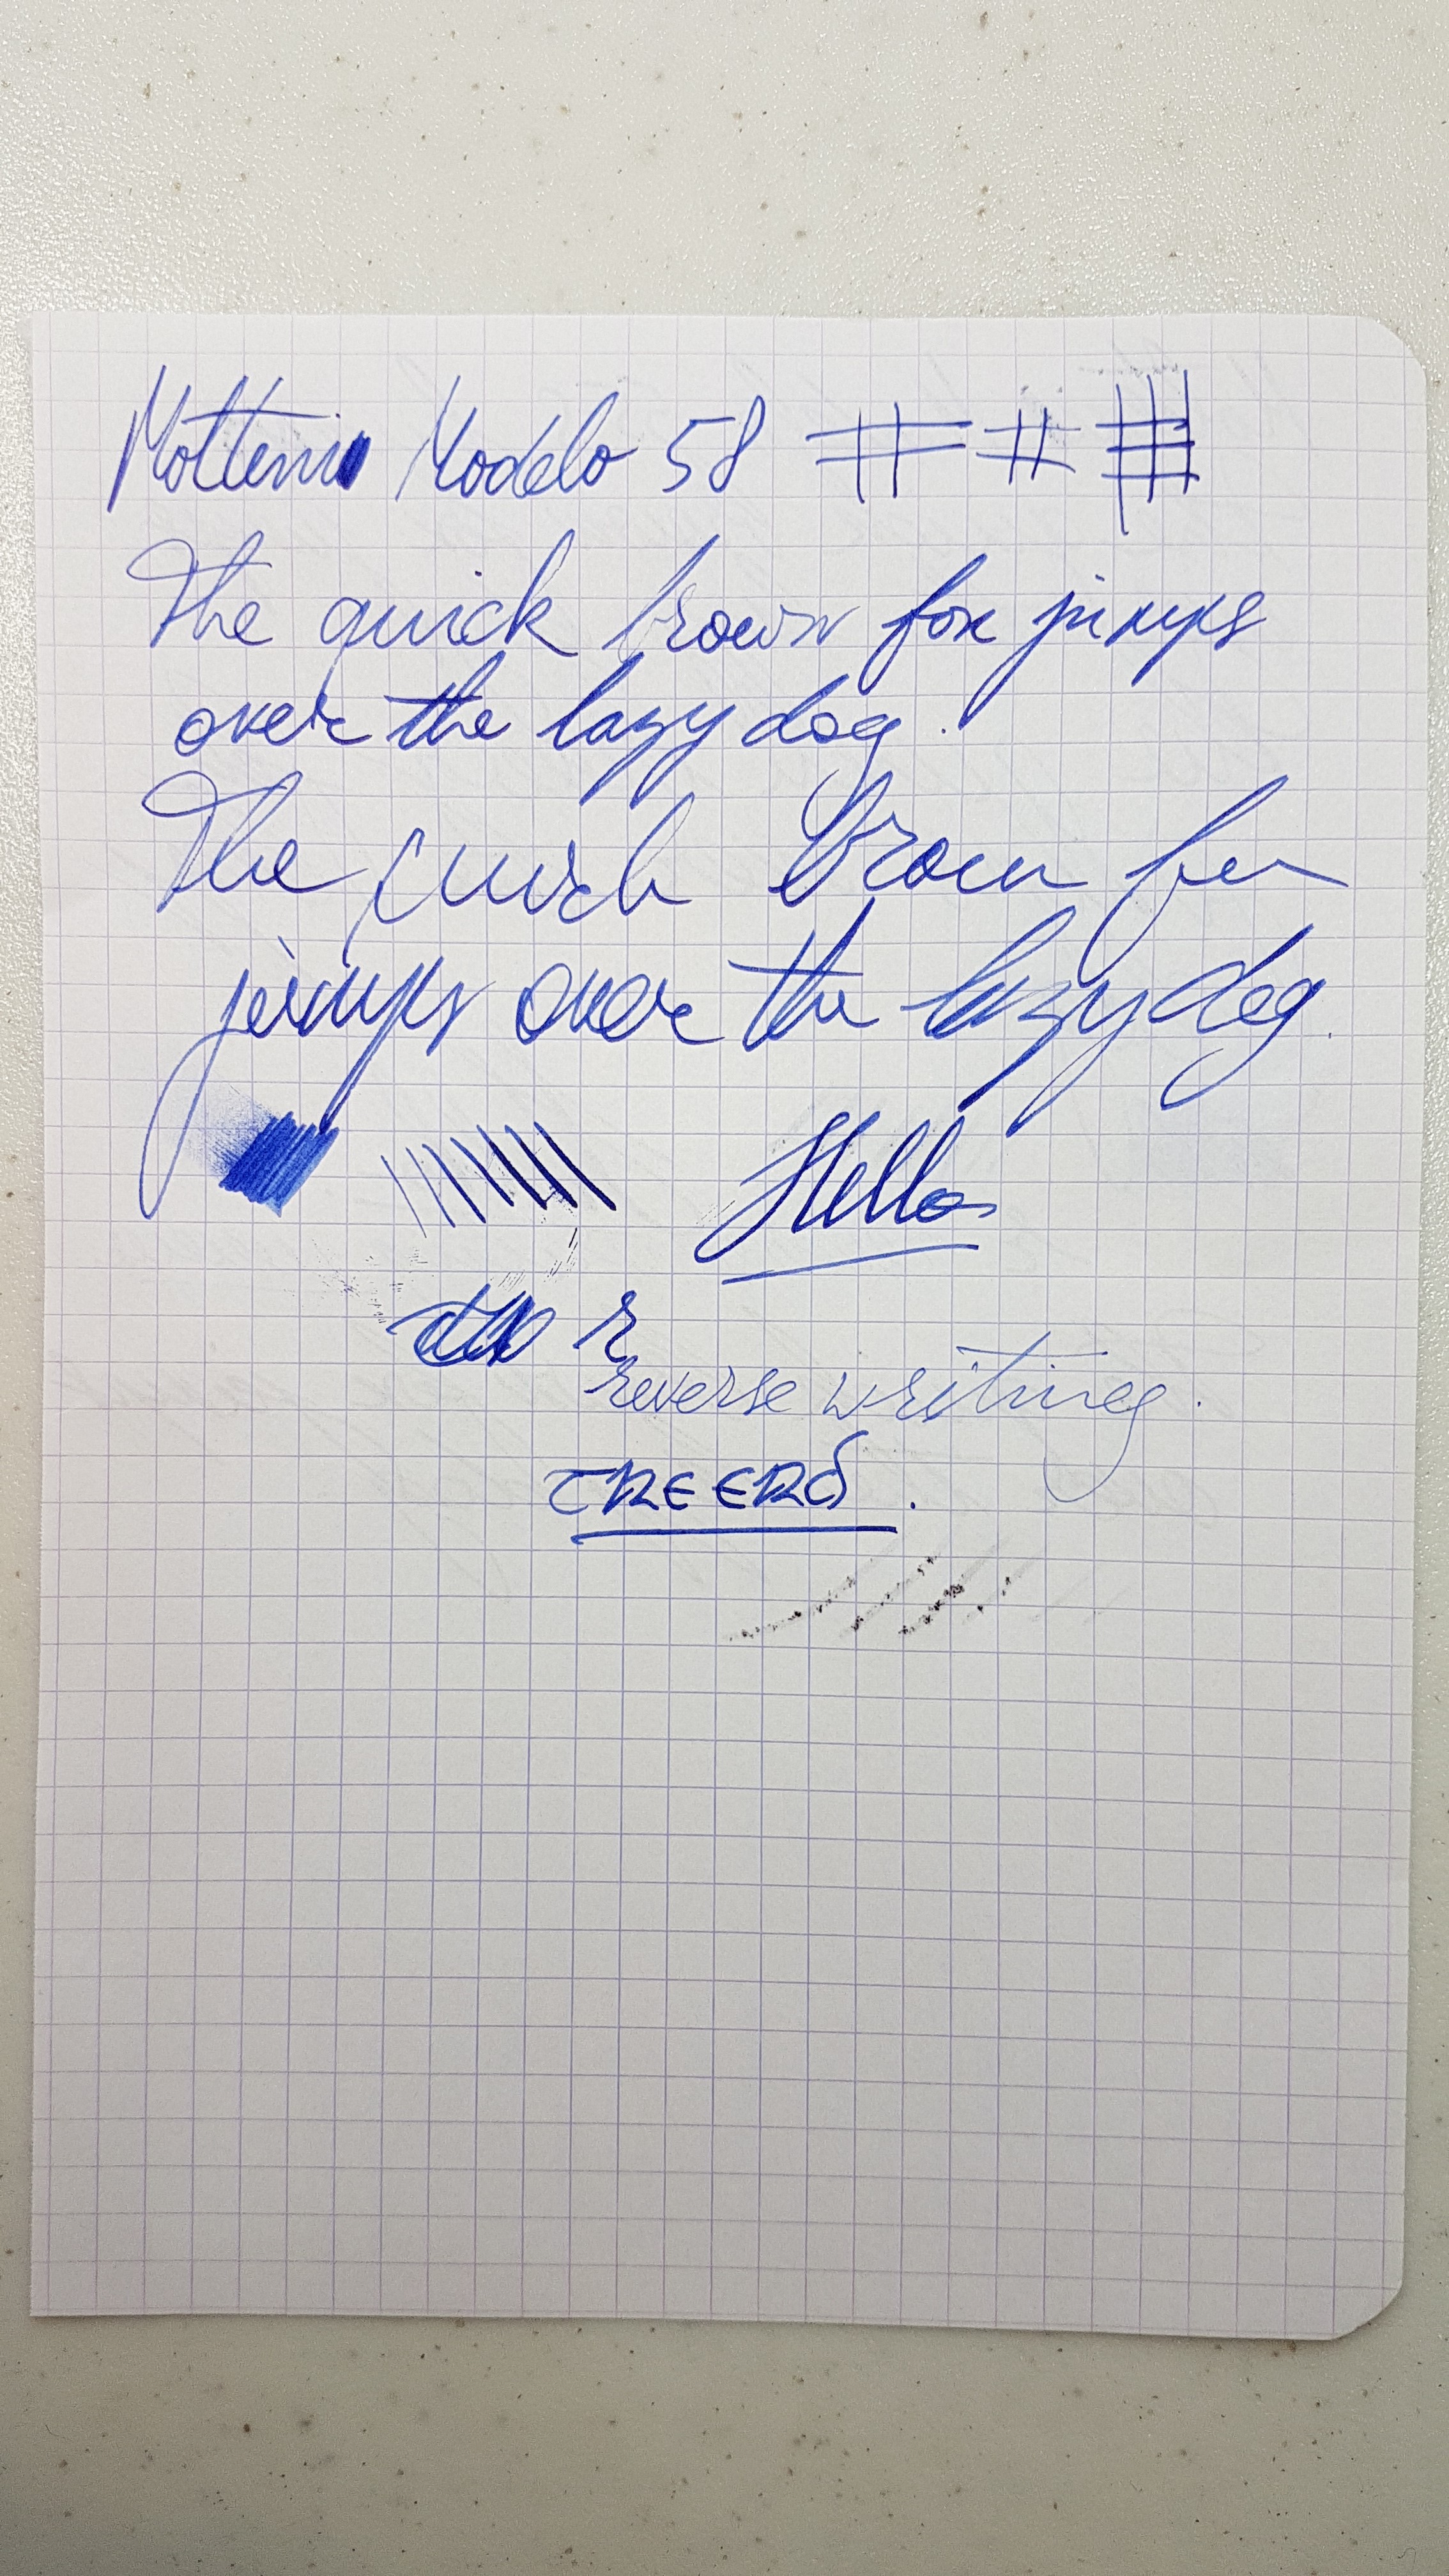 Molteni Modelo 58
The quick brown fox jumps
over the lazy dog.
The quick brown fox
jumps over the lazy dog.
Hello
r
reverse writing.